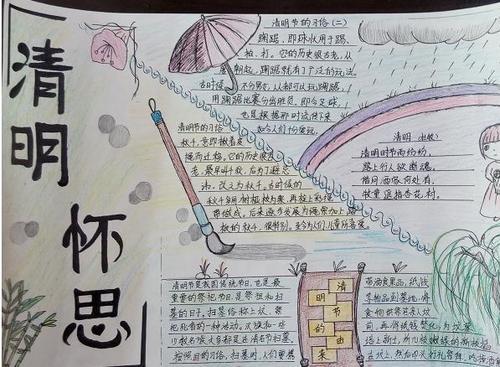 清明
怀思
清明节的习俗(二)
蹴鞠,即球状用于踢、
拍、打。它的历史很古老,从
蹴鞠就有了广泛的玩法。
古时候,不分男女,人都可以玩蹴鞠,
用蹴鞠比赛分出胜负,即今足球,
也是根据那时流传下来,
如今人们仍爱玩。
清明节的习俗
秋千,意即揪着皮
绳而迁移。它的历史很古
老,最早叫千秋,后为了避忌
讳,改之为秋千。古时候的
秋千多用树桠枝为架,再拴上彩绸
带做成。后来逐步发展为绳索加上踏
板的秋千,很特别。至今为人们喜爱。
清明
清明时节雨纷纷,
路上行人欲断魂。
借问酒家何处有,
牧童遥指杏花村。
清明节是我国传统节日,也是最
重要的祭祀节日,是祭祖和扫
墓的日子。扫墓俗称上坟,祭
祀死者的一种活动。汉族和一些
少数名族大多都是在清明节扫墓。
按照旧的习俗,扫墓时,人们要携
清明节的由来
带酒食果品,纸钱
等物品到墓地,将
食物供祭在亲人坟
前,再将纸钱焚化,为坟墓
培上新土,折几枝嫩绿的新枝插
在坟上,然后叩头行礼祭拜,